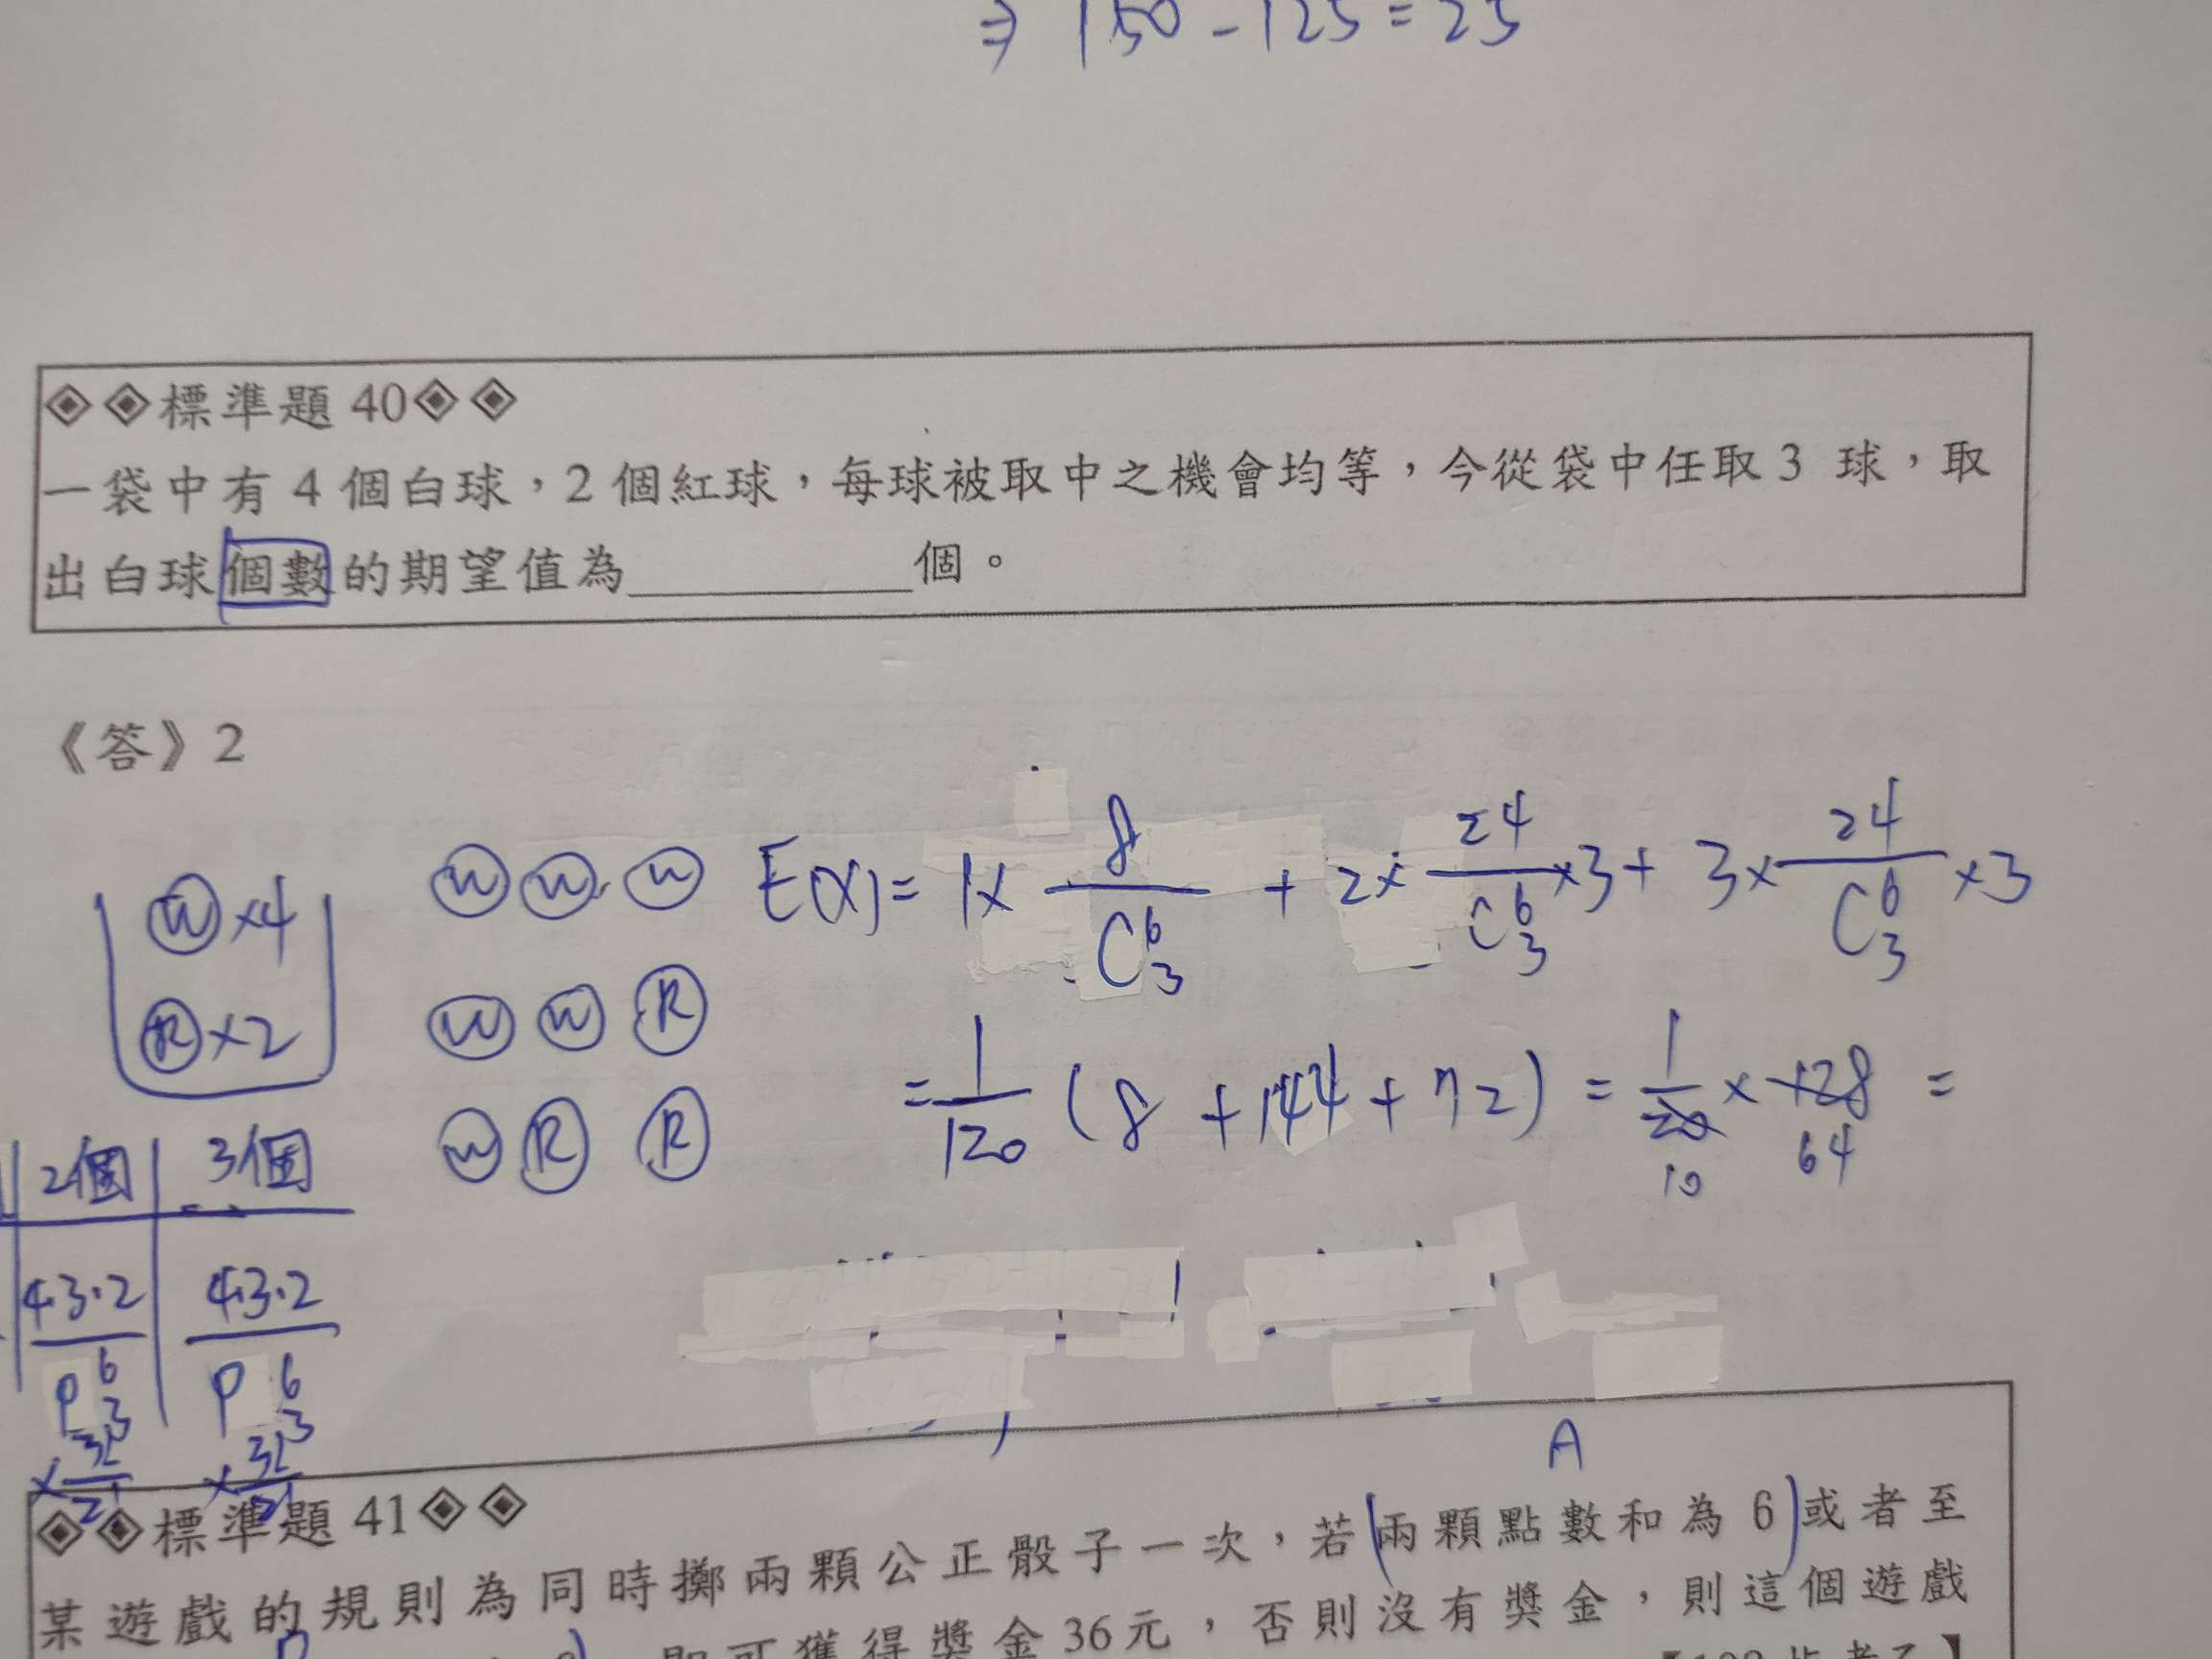 ⇒ 150 - 125 = 25
◈◈標準題 40◈◈
一袋中有 4 個白球，2 個紅球，每球被取中之機會均等，今從袋中任取 3 球，取
出白球個數的期望值為＿＿＿＿＿個。
《答》2
W ×4
R ×2
W W W
W W R
W R R
E(X) = 1× 8/C⁶₃ + 2× 24/C⁶₃ ×3 + 3× 24/C⁶₃ ×3
= 1/120 (8 + 144 + 72) = 1/20 × 128 =
10 64
2個 3個
4·3·2/P⁶₃ 4·3·2/P⁶₃
A
◈◈標準題 41◈◈
某遊戲的規則為同時擲兩顆公正骰子一次，若兩顆點數和為 6 或者至
即可獲得獎金 36 元，否則沒有獎金，則這個遊戲